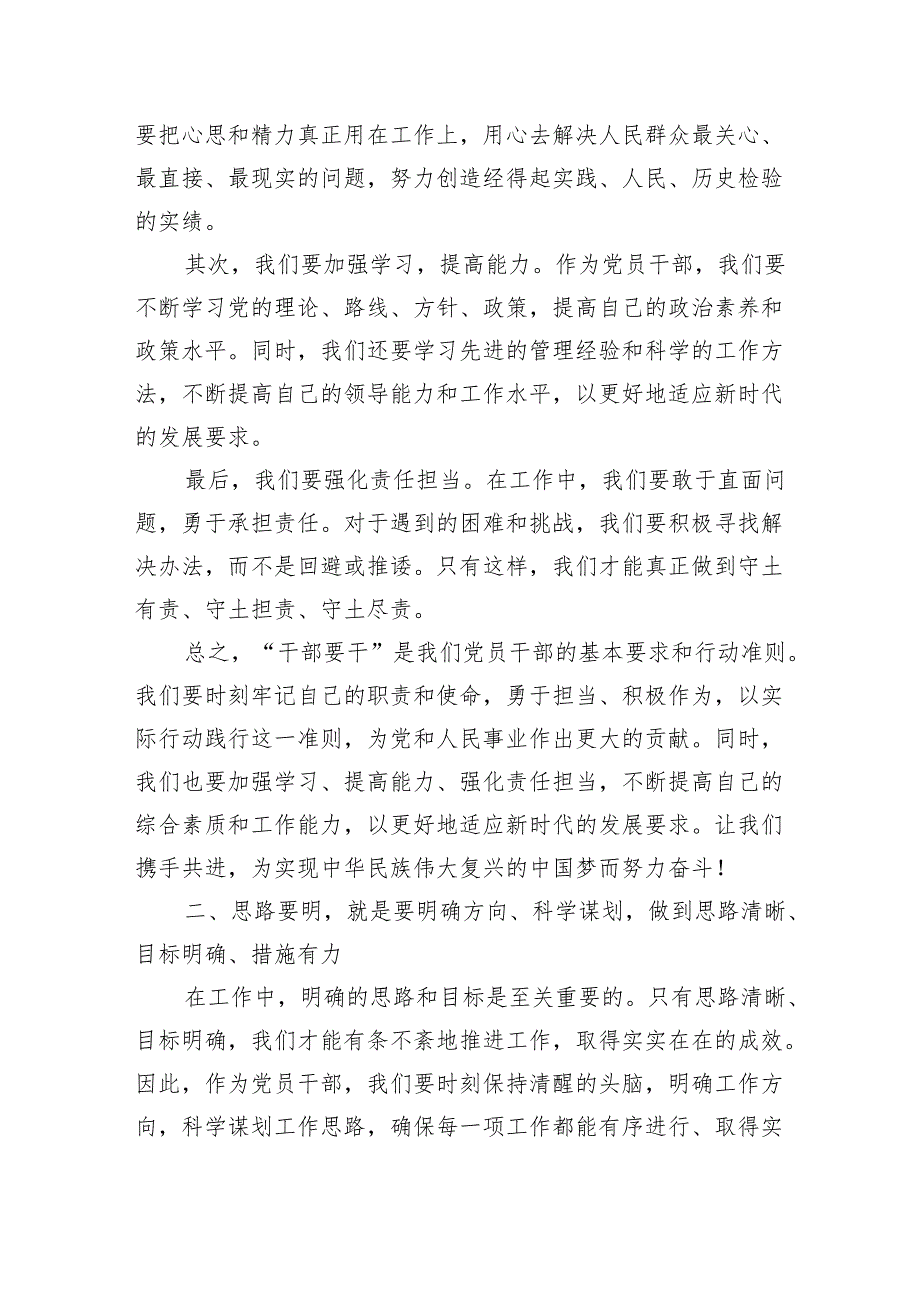 要把心思和精力真正用在工作上，用心去解决人民群众最关心、
最直接、最现实的问题，努力创造经得起实践、人民、历史检验
的实绩。
其次，我们要加强学习，提高能力。作为党员干部，我们要
不断学习党的理论、路线、方针、政策，提高自己的政治素养和
政策水平。同时，我们还要学习先进的管理经验和科学的工作方
法，不断提高自己的领导能力和工作水平，以更好地适应新时代
的发展要求。
最后，我们要强化责任担当。在工作中，我们要敢于直面问
题，勇于承担责任。对于遇到的困难和挑战，我们要积极寻找解
决办法，而不是回避或推诿。只有这样，我们才能真正做到守土
有责、守土担责、守土尽责。
总之，“干部要干”是我们党员干部的基本要求和行动准则。
我们要时刻牢记自己的职责和使命，勇于担当、积极作为，以实
际行动践行这一准则，为党和人民事业作出更大的贡献。同时，
我们也要加强学习、提高能力、强化责任担当，不断提高自己的
综合素质和工作能力，以更好地适应新时代的发展要求。让我们
携手共进，为实现中华民族伟大复兴的中国梦而努力奋斗！
二、思路要明，就是要明确方向、科学谋划，做到思路清晰、
目标明确、措施有力
在工作中，明确的思路和目标是至关重要的。只有思路清晰、
目标明确，我们才能有条不紊地推进工作，取得实实在在的成效。
因此，作为党员干部，我们要时刻保持清醒的头脑，明确工作方
向，科学谋划工作思路，确保每一项工作都能有序进行、取得实